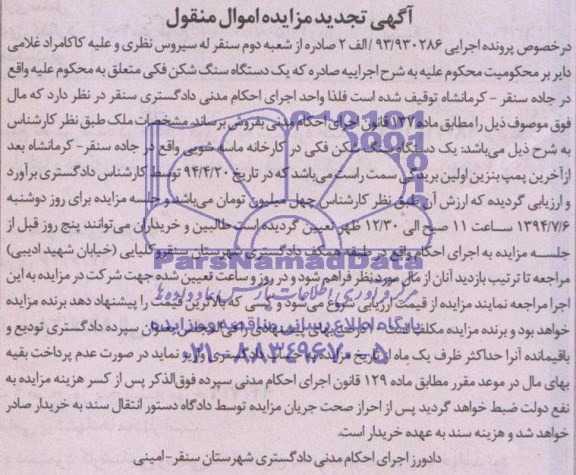 آگهی تجدید مزایده اموال منقول
درخصوص پرونده اجرایی ۹۳/۹۳۰۲۸۶/الف ۲ صادره از شعبه دوم سنقر له سیروس نظری و علیه کاکامراد غلامی
دایر بر محکومیت محکوم علیه به شرح اجراییه صادره که یک دستگاه سنگ شکن فکی متعلق به محکوم علیه واقع
در جاده سنقر - کرمانشاه توقیف شده است فلذا واحد اجرای احکام مدنی دادگستری سنقر در نظر دارد که مال
فوق موصوف ذیل را مطابق ماده ۱۳۷ قانون اجرای احکام مدنی بفروش برساند مشخصات ملک طبق نظر کارشناس
به شرح ذیل می‌باشد: یک دستگاه سنگ شکن فکی در کارخانه ماسه شویی واقع در جاده سنقر- کرمانشاه بعد
از آخرین پمپ بنزین اولین بریدگی سمت راست می‌باشد که در تاریخ ۹۴/۴/۲۰ توسط کارشناس دادگستری برآورد
و ارزیابی گردیده که ارزش آن طبق نظر کارشناس چهل میلیون تومان می‌باشد و جلسه مزایده برای روز دوشنبه
۱۳۹۴/۷/۶ ساعت ۱۱ صبح الی ۱۲/۳۰ ظهر تعیین گردیده است طالبین و خریداران می‌توانند پنج روز قبل از
جلسه مزایده به اجرای احکام واقع در طبقه همکف دادگستری شهرستان سنقر و کلیایی (خیابان شهید ادیبی)
مراجعه تا ترتیب بازدید آنان از مال مورد نظر فراهم شود و در روز و ساعت تعیین شده جهت شرکت در مزایده به این
اجرا مراجعه نمایند مزایده از قیمت ارزیابی شروع می‌شود و کسی که بالاترین قیمت را پیشنهاد دهد برنده مزایده
خواهد بود و برنده مزایده مکلف است ۱۰ درصد بهای پیشنهادی را فی المجلس بعنوان سپرده دادگستری تودیع و
باقیمانده آنرا حداکثر ظرف یک ماه از تاریخ مزایده به حساب دادگستری واریز نماید در صورت عدم پرداخت بقیه
بهای مال در موعد مقرر مطابق ماده ۱۲۹ قانون اجرای احکام مدنی سپرده فوق‌الذکر پس از کسر هزینه مزایده به
نفع دولت ضبط خواهد گردید پس از احراز صحت جریان مزایده توسط دادگاه دستور انتقال سند به خریدار صادر
خواهد شد و هزینه سند به عهده خریدار است.
دادورز اجرای احکام مدنی دادگستری شهرستان سنقر-امینی
ParsNamadData
پایگاه اطلاع رسانی مناقصه و مزایده
۰۲۱-۸۸۳۴۹۶۷۰-۵